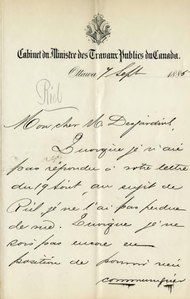 Cabinet du Ministre des Travaux Publics du Canada.
Ottawa 7 Sept 1885
Riel
Mon cher M. Desjardins,
Quoique je n'ai
pas répondu à votre lettre
du 19 Aout au sujet de
Riel je ne l'ai pas perdue
de vue. Quoique je ne
sois pas encore en
position de pouvoir
communiquer